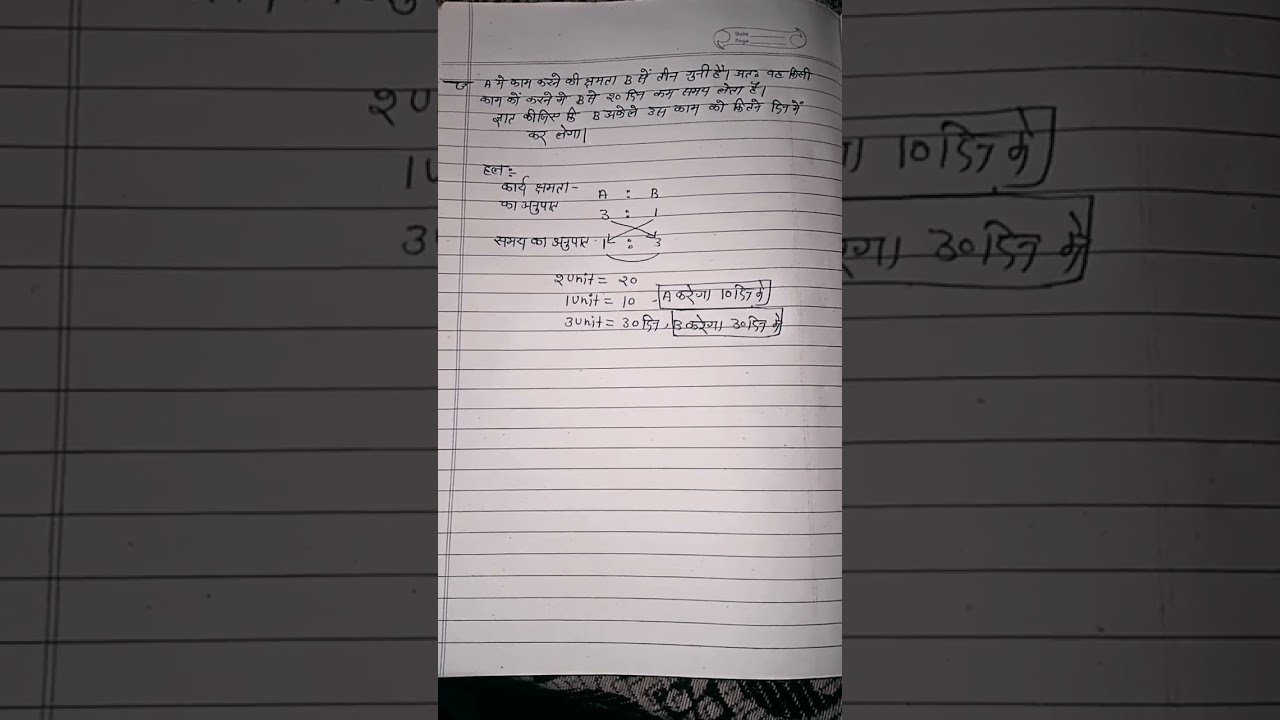 A में काम करने की क्षमता B से तीन गुनी है। अतः वह किसी
काम कों करने में B से २० दिन कम समय लेता है।
ज्ञात कीजिए कि B अकेले उस काम को कितने दिन में
कर लेगा।
हलः
कार्य क्षमता - A : B
का अनुपात 3 : 1
समय का अनुपात 1 : 3
२unit = २०
1unit = 10 - A करेगा 10 दिन में
3unit = 30 दिन, B करेगा 30 दिन में